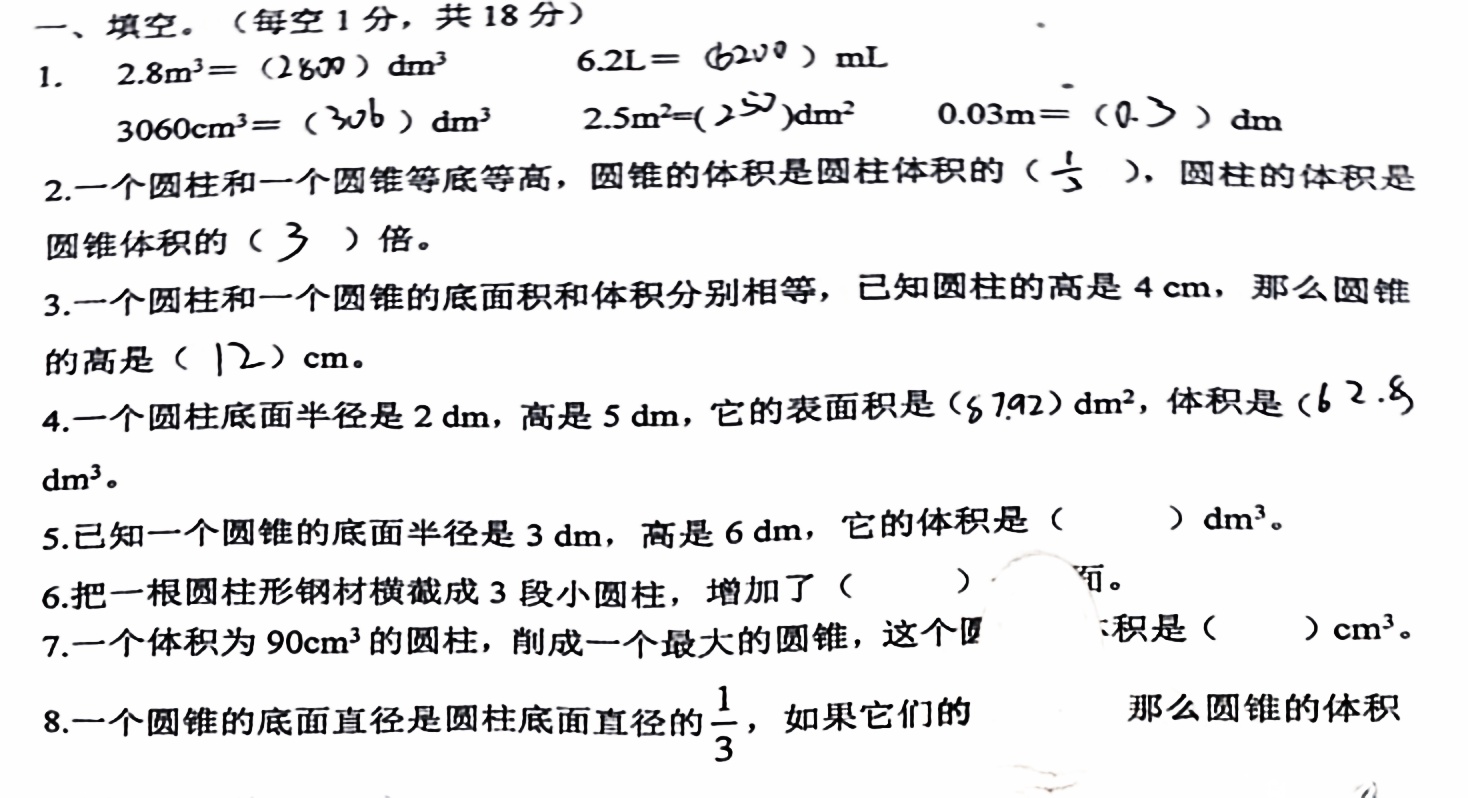 一、填空。（每空 1 分，共 18 分）
1. 2.8m³＝（2800）dm³ 6.2L＝（6200）mL
3060cm³＝（306）dm³ 2.5m²=(250)dm² 0.03m＝（0.3）dm
2.一个圆柱和一个圆锥等底等高，圆锥的体积是圆柱体积的（1/3），圆柱的体积是
圆锥体积的（3）倍。
3.一个圆柱和一个圆锥的底面积和体积分别相等，已知圆柱的高是 4 cm，那么圆锥
的高是（12）cm。
4.一个圆柱底面半径是 2 dm，高是 5 dm，它的表面积是（87.92）dm²，体积是（62.8
dm³。
5.已知一个圆锥的底面半径是 3 dm，高是 6 dm，它的体积是（ ）dm³。
6.把一根圆柱形钢材横截成 3 段小圆柱，增加了（ ） 面。
7.一个体积为 90cm³ 的圆柱，削成一个最大的圆锥，这个 积是（ ）cm³。
8.一个圆锥的底面直径是圆柱底面直径的1/3，如果它们的 那么圆锥的体积